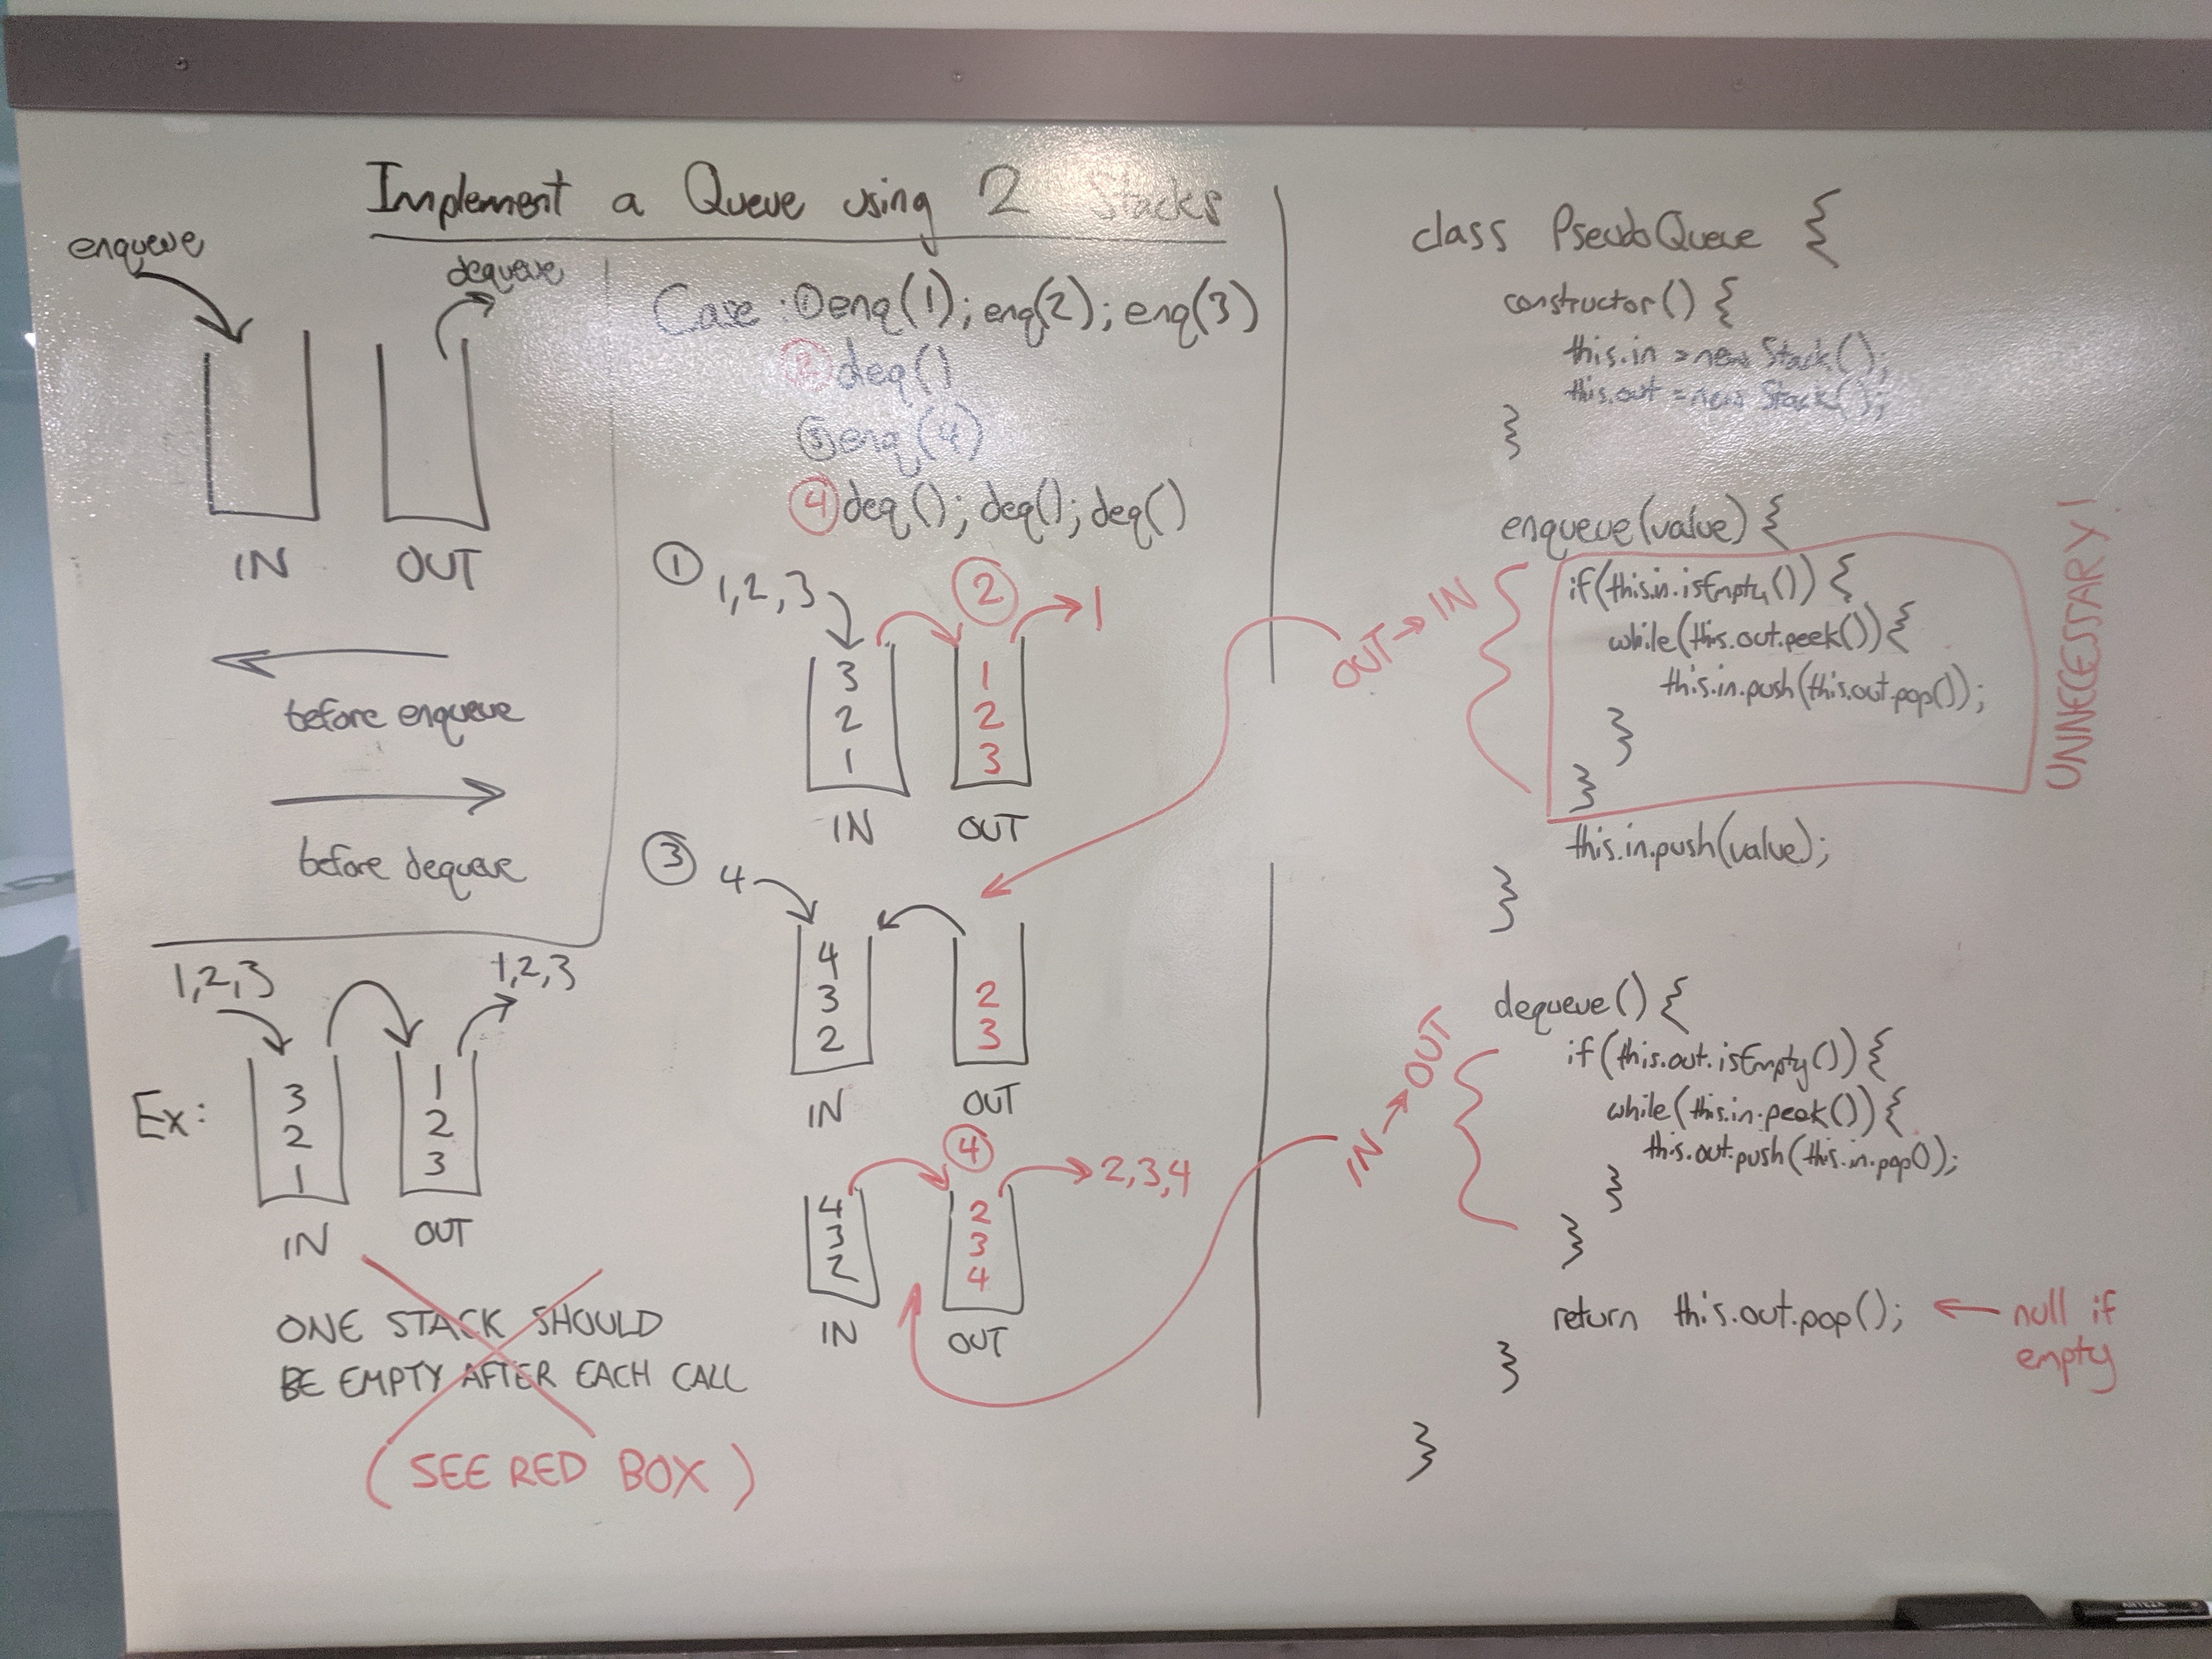 Implement a Queue using 2 Stacks
enqueue
dequeue
IN OUT
before enqueue
before dequeue
1,2,3 1,2,3
Ex:
3 1
2 2
1 3
IN OUT
ONE STACK SHOULD
BE EMPTY AFTER EACH CALL
(SEE RED BOX)
Case: ① enq(1); enq(2); enq(3)
② deq()
③ enq(4)
④ deq(); deq(); deq()
① 1,2,3 ② 1
3 1
2 2
1 3
IN OUT
③ 4
4
3 2
2 3
IN OUT
④ 2,3,4
4 2
3 3
2 4
IN OUT
class PseudoQueue {
constructor() {
this.in = new Stack();
this.out = new Stack();
}
enqueue(value) {
OUT → IN
if(this.in.isEmpty()) {
while(this.out.peek()) {
this.in.push(this.out.pop());
}
}
UNNECESSARY!
this.in.push(value);
}
dequeue() {
IN → OUT
if(this.out.isEmpty()) {
while(this.in.peek()) {
this.out.push(this.in.pop());
}
}
return this.out.pop(); ← null if
empty
}
}
ARTEZA